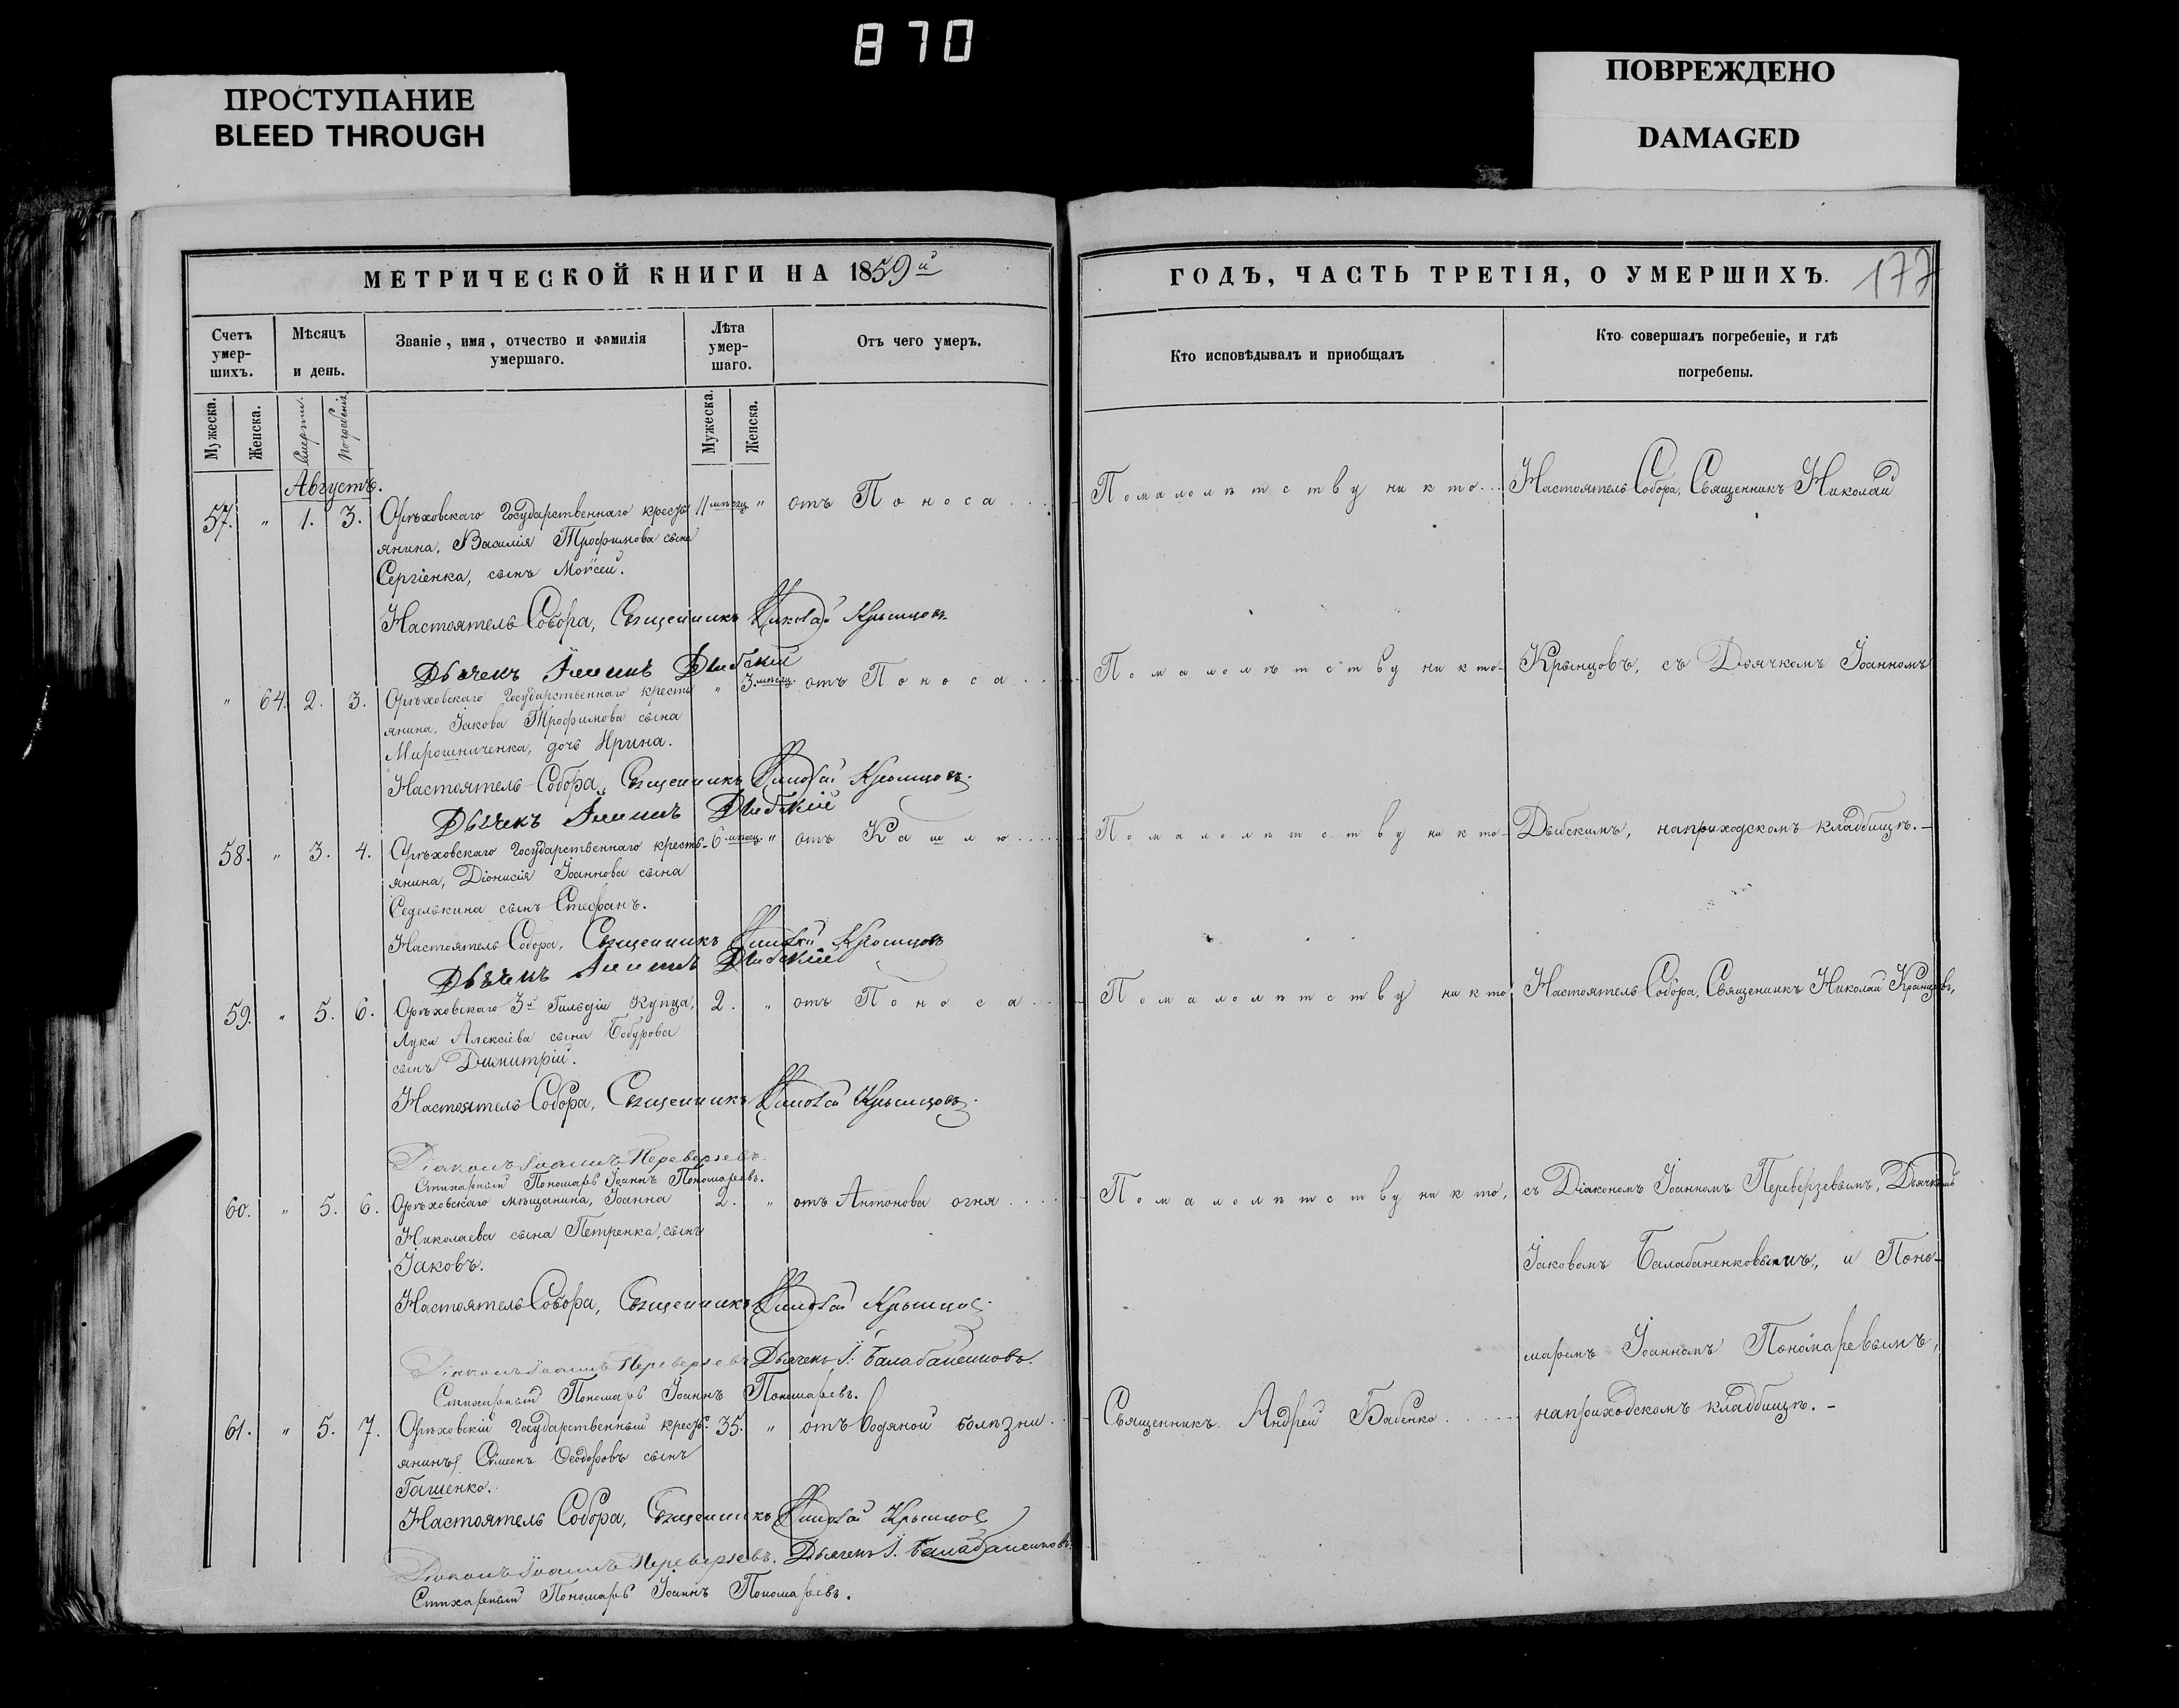 870
ПРОСТУПАНИЕ
BLEED THROUGH
ПОВРЕЖДЕНО
DAMAGED
МЕТРИЧЕСКОЙ КНИГИ НА 1859й
Счетъ умер-шихъ.
Мѣсяцъ и день.
Званіе, имя, отчество и фамилія умершаго.
Лѣта умер-шаго.
Отъ чего умеръ.
Мужеска.
Женска.
Смерти.
Погребенія
Мужеска.
Женска.
Августъ.
57. " 1. 3. Орѣховскаго Государственнаго кресть 11 мѣсяц. " отъ Поноса
янина, Василія Трофимова сына
Сергіенка, сынъ Моѵсей.
Настоятель Собора, Священникъ Николай Крынцовъ
Дьячекъ Іоаннъ Дьибскій
" 64. 2. 3. Орѣховскаго Государственнаго кресть " 3. мѣсяц. отъ Поноса
янина, Іакова Трофимова сына
Мирошниченка, дочь Ирина.
Настоятель Собора, Священникъ Николай Крынцовъ.
Дьячекъ Іоаннъ
58. " 3. 4. Орѣховскаго Государственнаго кресть- 6 мѣсяц. " отъ Кашлю
янина, Діонисія Іоаннова сына
Седелькина сынъ Стефанъ.
Настоятель Собора, Священникъ Николай Крынцовъ
Дьячекъ Іоаннъ
59. " 5. 6. Орѣховскаго 3й Гильдіи Купца, 2. " отъ Поноса
Луки Алексіева сына Бобурова
сынъ Димитрій.
Настоятель Собора, Священникъ Николай Крынцовъ.
Діаконъ Іоаннъ Переверзевъ.
Стихарный Пономарь Іоаннъ Пономаревъ.
60. " 5. 6. Орѣховскаго мѣщанина, Іоанна 2. " отъ Антонова огня
Николаева сына Петренка, сынъ
Іаковъ.
Настоятель Собора, Священникъ Николай Крынцовъ.
Діаконъ Іоаннъ Переверзевъ Дьячекъ І. Балабаненковъ.
Стихарный Пономарь Іоаннъ Пономаревъ.
61. " 5. 7. Орѣховскій Государственный кресть- 35. " отъ водяной болѣзни
янинъ, Сѵмеонъ Ѳеодоровъ сынъ
Гашенко.
Настоятель Собора, Священникъ Николай Крынцовъ
Діаконъ Іоаннъ Переверзевъ. Дьячекъ І. Балабаненковъ.
Стихарный Пономарь Іоаннъ Пономаревъ.
ГОДЪ, ЧАСТЬ ТРЕТІЯ, О УМЕРШИХЪ.
177
Кто исповѣдывалъ и приобщалъ
Кто совершалъ погребеніе, и гдѣ
погребены.
По малолѣтству никто Настоятель Собора, Священникъ Николай
По малолѣтству никто Крынцовъ, съ Дьячкомъ Іоанномъ
По малолѣтству никто Дьибскимъ, на приходскомъ кладбищѣ.
По малолѣтству никто Настоятель Собора, Священникъ Николай Крынцовъ,
По малолѣтству никто, съ Діакономъ Іоанномъ Переверзевымъ, Дьячкомъ
Іаковомъ Балабаненковымъ, и Поно-
маремъ Іоанномъ Пономаревымъ,
Священникъ Андрей Бабенко на приходскомъ кладбищѣ.